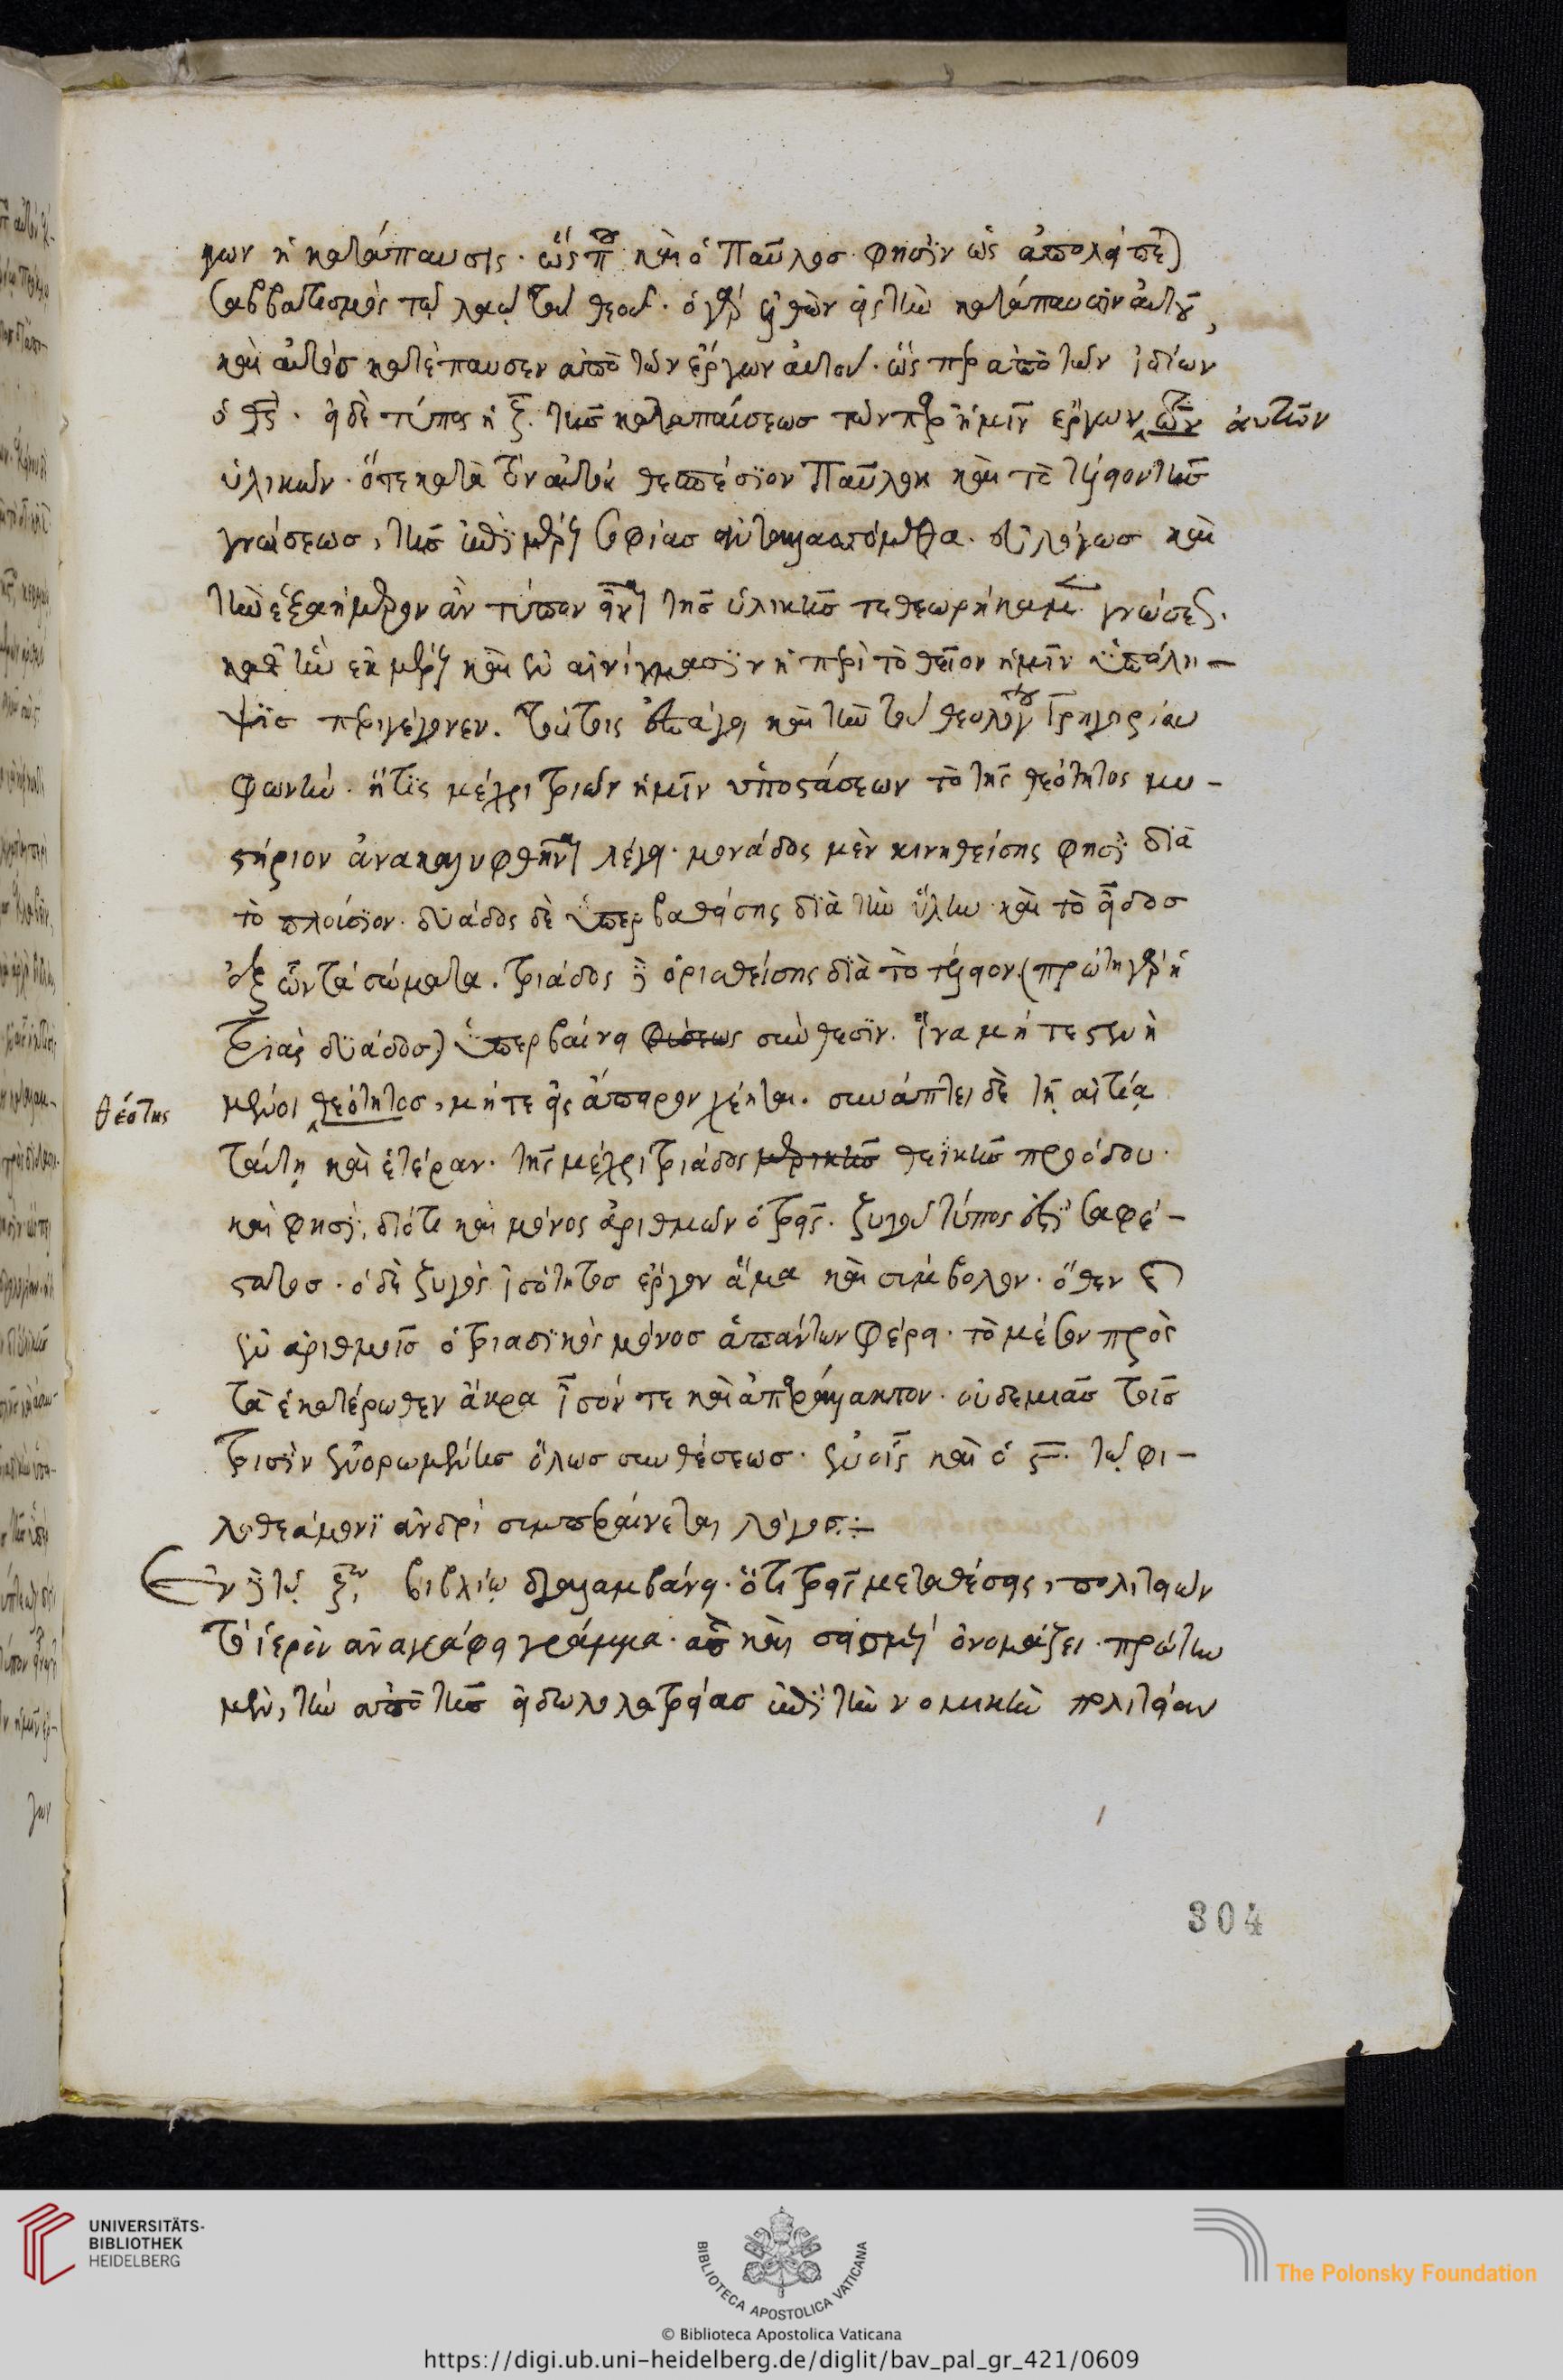 γων ἡ κατάπαυσις. ὥς π καὶ ὁ Παῦλος φησὶν ὡς ἀπολείπε)
σαββατισμὸς τῷ λαῷ τοῦ θεοῦ. ὁ γὰρ εἰσελθὼν εἰς τὴν κατάπαυσιν αὐτοῦ,
καὶ αὐτὸς κατέπαυσεν ἀπὸ τῶν ἔργων αὐτοῦ. ὥσπερ ἀπὸ τῶν ἰδίων
ὁ θς. εἰ δὲ τύπος ἡ ξ. τῆς καταπαύσεως τῶν παρ' ἡμῖν ἔργων αὐτῶν
ὑλικῶν. ὅτε κατὰ τὸν αὐτὸν θεσπέσιον Παῦλον καὶ τὸ τέλειον τῆς
γνώσεως, τῆς ἐπὶ μέρει σοφίας ἀντιλαψόμεθα. εὐλόγως καὶ
τὴν ἑξαήμερον ἂν τύπον εἶναι τῆς ὑλικῆς τεθεωρήκαμεν γνώσεως.
καθ' ἣν ἐκ μέρει καὶ ἐν αἰνίγμασιν ἡ περὶ τὸ θεῖον ἡμῖν ὑπόλη-
ψις περιγέγονεν. τούτοις ἐπάγει καὶ τὴν τοῦ θεολόγου Γρηγορίου
φωνήν. ἥτις μέχρι τριῶν ἡμῖν ὑποστάσεων τὸ τῆς θεότητος μυ-
στήριον ἀνακαλυφθῆναι λέγει. μονάδος μὲν κινηθείσης φησὶ διὰ
τὸ πλούσιον. δυάδος δὲ ὑπερβαθείσης διὰ τὴν ὕλην καὶ τὸ εἶδος
ἐξ ὧν τὰ σώματα. τριάδος δὲ ὁρισθείσης διὰ τὸ τέλειον. (πρώτη γὰρ ἡ
τριὰς δυάδος) ὑπερβαίνει φύσεως σύνθεσιν. ἵνα μήτε στενὴ
θεότης μένοι θεότητος, μήτε εἰς ἄπειρον χέηται. συνάπτει δὲ τῇ αἰτίᾳ
ταύτῃ καὶ ἑτέραν. τῆς μέχρι τριάδος μερικῆς θεϊκῆς προόδου.
καὶ φησὶ, διότι καὶ μόνος ἀριθμῶν ὁ τρεῖς. ζυγοῦ τύπος ἐστὶ σαφέ-
στατος. ὁ δὲ ζυγὸς ἰσότητος ἔργον ἅμα καὶ σύμβολον. ὅθεν
ἐν ἀριθμοῖς ὁ τριαδικὸς μόνος ἁπάντων φέρει. τὸ μέσον πρὸς
τὰ ἑκατέρωθεν ἄκρα ἶσόν τε καὶ ἀπαράλλακτον. οὐδεμιᾶς τοῖς
τρισὶν ἐνορωμένης ὅλως συνθέσεως. ἐν οἷς καὶ ὁ ς. τῷ φι-
λοθεάμονι ἀνδρὶ συμπεραίνεται λόγος:
Ἐν δὲ τῷ ξ, βιβλίῳ διαλαμβάνει. ὅτι τρεῖς μεταθέσεις, πολιτειῶν
τὸ ἱερὸν ἀναγράφει γράμμα. ἃς καὶ σεισμοὺς ὀνομάζει. πρώτην
μὲν, τὴν ἀπὸ τῆς εἰδωλολατρείας ἐπὶ τὴν νομικὴν πολιτείαν
304
UNIVERSITÄTS-
BIBLIOTHEK
HEIDELBERG
BIBLIOTECA APOSTOLICA VATICANA
© Biblioteca Apostolica Vaticana
The Polonsky Foundation
https://digi.ub.uni-heidelberg.de/diglit/bav_pal_gr_421/0609